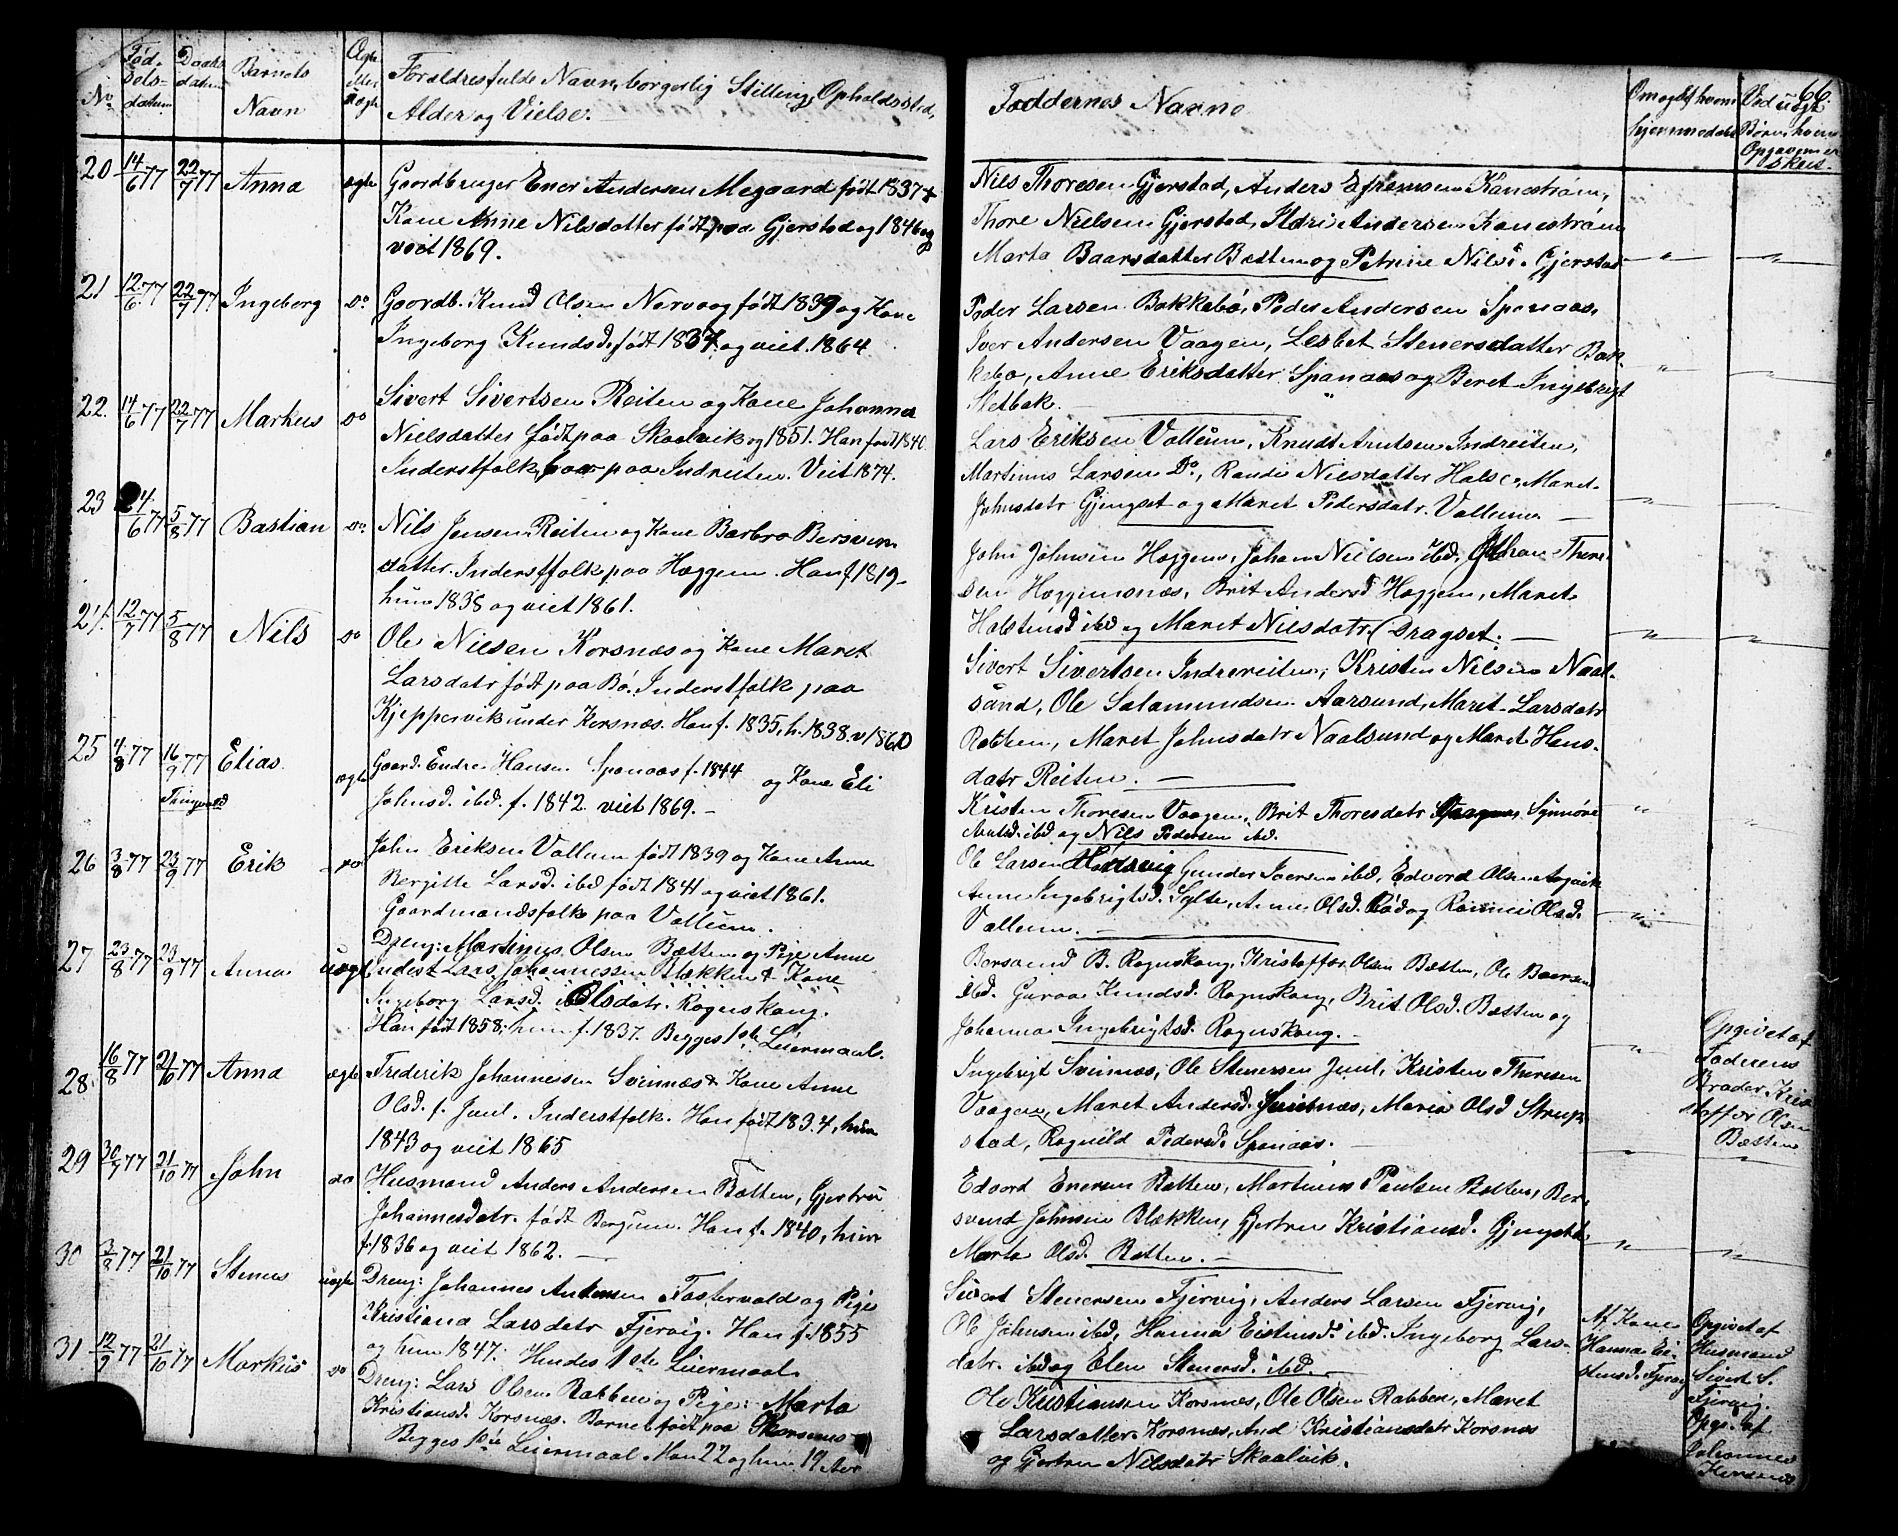 66.
No
Fød-
sels-
datum
Daabs
datum
Barnets
Navn
Ægte
eller
uægte
Forældres fulde Navn, borgerlig Stilling, Opholdssted,
Alder og Vielse.
Faddernes Navne
Om og af hvem
hjemmedøbt
Ved uægte
Børn, hvem
Opgaven er
skeet.
20 14/6 77 22/7 77 Anna ægte
Gaardbruger Ener Andersen Megaard født 1837 +
Kone Anne Nilsdatter født paa Gjerstad og 1846 og
viet 1869.
Nils Thoresen Gjerstad, Anders Efremsen Kanestrøm,
Thore Nielsen Gjerstad, Ildri Andersen Kanestrøm
Marta Baarsdatter Bøtten og Petrine Nils. Gjerstad
21 12/6 77 22/7 77 Ingeborg Do
Gaardb. Knud Olsen Norvaag født 1839 og Kone
Ingeborg Knudsd. født 1837. og viet. 1864
Peder Larsen Bakkebø, Peder Andersen Spanaas,
Iver Andersen Vaagen, Lesbet Stenersdatter Bak
kebø, Anne Eriksdatter Spanaas og Beret Ingebrigt
Sletbak.
22. 14/6 77 22/7 77 Markus Do
Sivert Sivertsen Reiten og Kone Johanna
Nielsdatter født paa Skaalvik og 1851. Han født 1846
Inderstfolk paa Indreiten. Viet 1874.
Lars Eriksen Vullum, Knudt Arntsen Indreiten,
Martinus Larsen Do, Randi Nilsdatter Halse, Maret
Johnsdatr Gjengset og Maret Pedersdatr. Vullum
23 24/6 77 5/8 77 Bastian Do
Nils Jensen Reiten og Kone Barbro Bersven
datter. Inderstfolk paa Høggem. Han f. 1819
hun 1838 og viet 1861.
John Johnsen Høggem, Johan Nielsen ibd. Johan Thore
sen Høggemsnæs, Brit Andersd Høggem, Maret
Halstensd ibd og Maret Nilsdatr. Dragset.
24. 12/7 77 5/8 77 Nils Do
Ole Nielsen Korsnæs og Kone Maret
Larsdatr født paa Bø. Inderstfolk paa
Kjeppervik under Korsnæs. Han f. 1835, h. 1838. v 1860
Sivert Sivertsen Indrereiten, Kristen Nilsen Naal-
sund, Ole Salamundsen Aarsund, Maret Larsdatr
Rabben, Maret Johnsdatr Naalsund og Maret Hans-
datr Reiten.
25 4/8 77 16/9 77 Elias. ægte
Tingvold
Gaard. Endre Hansen Spanaas f. 1844 og Kone Eli
Johnsd. ibd. f. 1842. viet 1869.
Kristen Thoresen Vaagen, Brit Thoresdatr Vaagen, Synnøve
Arntsd. ibd og Nils Pedersen ibd.
26 3/8 77 23/9 77 Erik Do
John Eriksen Vullum født 1839 og Kone Anne
Bergitte Larsd. ibd født 1841 og viet 1861.
Gaardmandsfolk paa Vullum.
Ole Larsen Gunder Iversen ibd, Edvard Olsen Aasvik
Anne Ingebrigtsd. Sylte, Anne Olsd. Bø og Olsd.
Vullum.
27 23/8 77 23/9 77 Anna uægte
Dreng: Martinus Olsen Bøtten og Pige Anne
Lars Johannessen Blekken & Kone
Ingeborg Larsd. ibd Olsdatr. Rognskaug.
Han født 1858, hun f. 1837. Begges 1ste Leiermaal.
Bersvend B. Rognskaug, Kristoffer Olsen Bøtten, Ole Baarsen
ibd. Guroe Knudsd. Rognskaug, Brit Olsd. Bøtten og
Johanna Ingebrigtsd. Rognskaug.
Opgivet af
Faderens
Broder, Kri
stoffer Olsen
Bøtten
28. 16/8 77 21/10 77 Anna ægte
Frederik Johannessen Svinnæs & Kone Anne
Olsd. f. Juul. Inderstfolk. Han født 1834, hun
1843 og viet 1865
Ingebrigt Svinnæs, Ole Stenersen Juul, Kristen Thoresen
Vaagen, Maret Andersd. Svinnæs, Maria Olsd Strup
stad, Ragnild Pedersd. Spanaas.
29 30/7 77 21/10 77 John Do
Husmand Anders Andersen Bøtten, Gjertru
Johannesdatr. født Bergum. Han f. 1840, hun
f. 1836 og viet 1862.
Edvard Enersen Bøtten, Martinus Paulsen Bøtten, Ber
svend Johnsen Blekken, Gjertru Kristiansd. Gjengset
Marta Olsd. Bøtten.
30 3/8 77 21/10 77 Steners uægte
Dreng: Johannes Antonsen Fastervold og Pige
Kristiana Larsdatr Fjervig. Han f. 1855
og hun 1847. Hendes 1ste Leiermaal
Sivert Stenersen Fjervig, Anders Larsen Fjervig,
Ole Johnsen ibd, Hanna Eistensd. ibd. Ingeborg Lars-
datr. ibd og Elen Stenersd. ibd.
Af Kone
Hanna Ei-
stensd. Fjervig
Opgivet af
Husmand
Sivert S.
Fjervig.
31. 12/9 77 21/10 77 Markus Do
Dreng: Lars Olsen Rabben og Pige: Marta
Kristiansd. Korsnæs. Barnet født paa Korsnæs
Begges 1ste Leiermaal. Han 22 og hun 19 Aar
Ole Kristiansen Korsnæs, Ole Olsen Rabben, Maret
Larsdatter Korsnæs, And Kristiansdatr Korsnæs
og Gjertru Nilsdatr Skaalvik.
Opgi. af
Johannes
Korsnæs